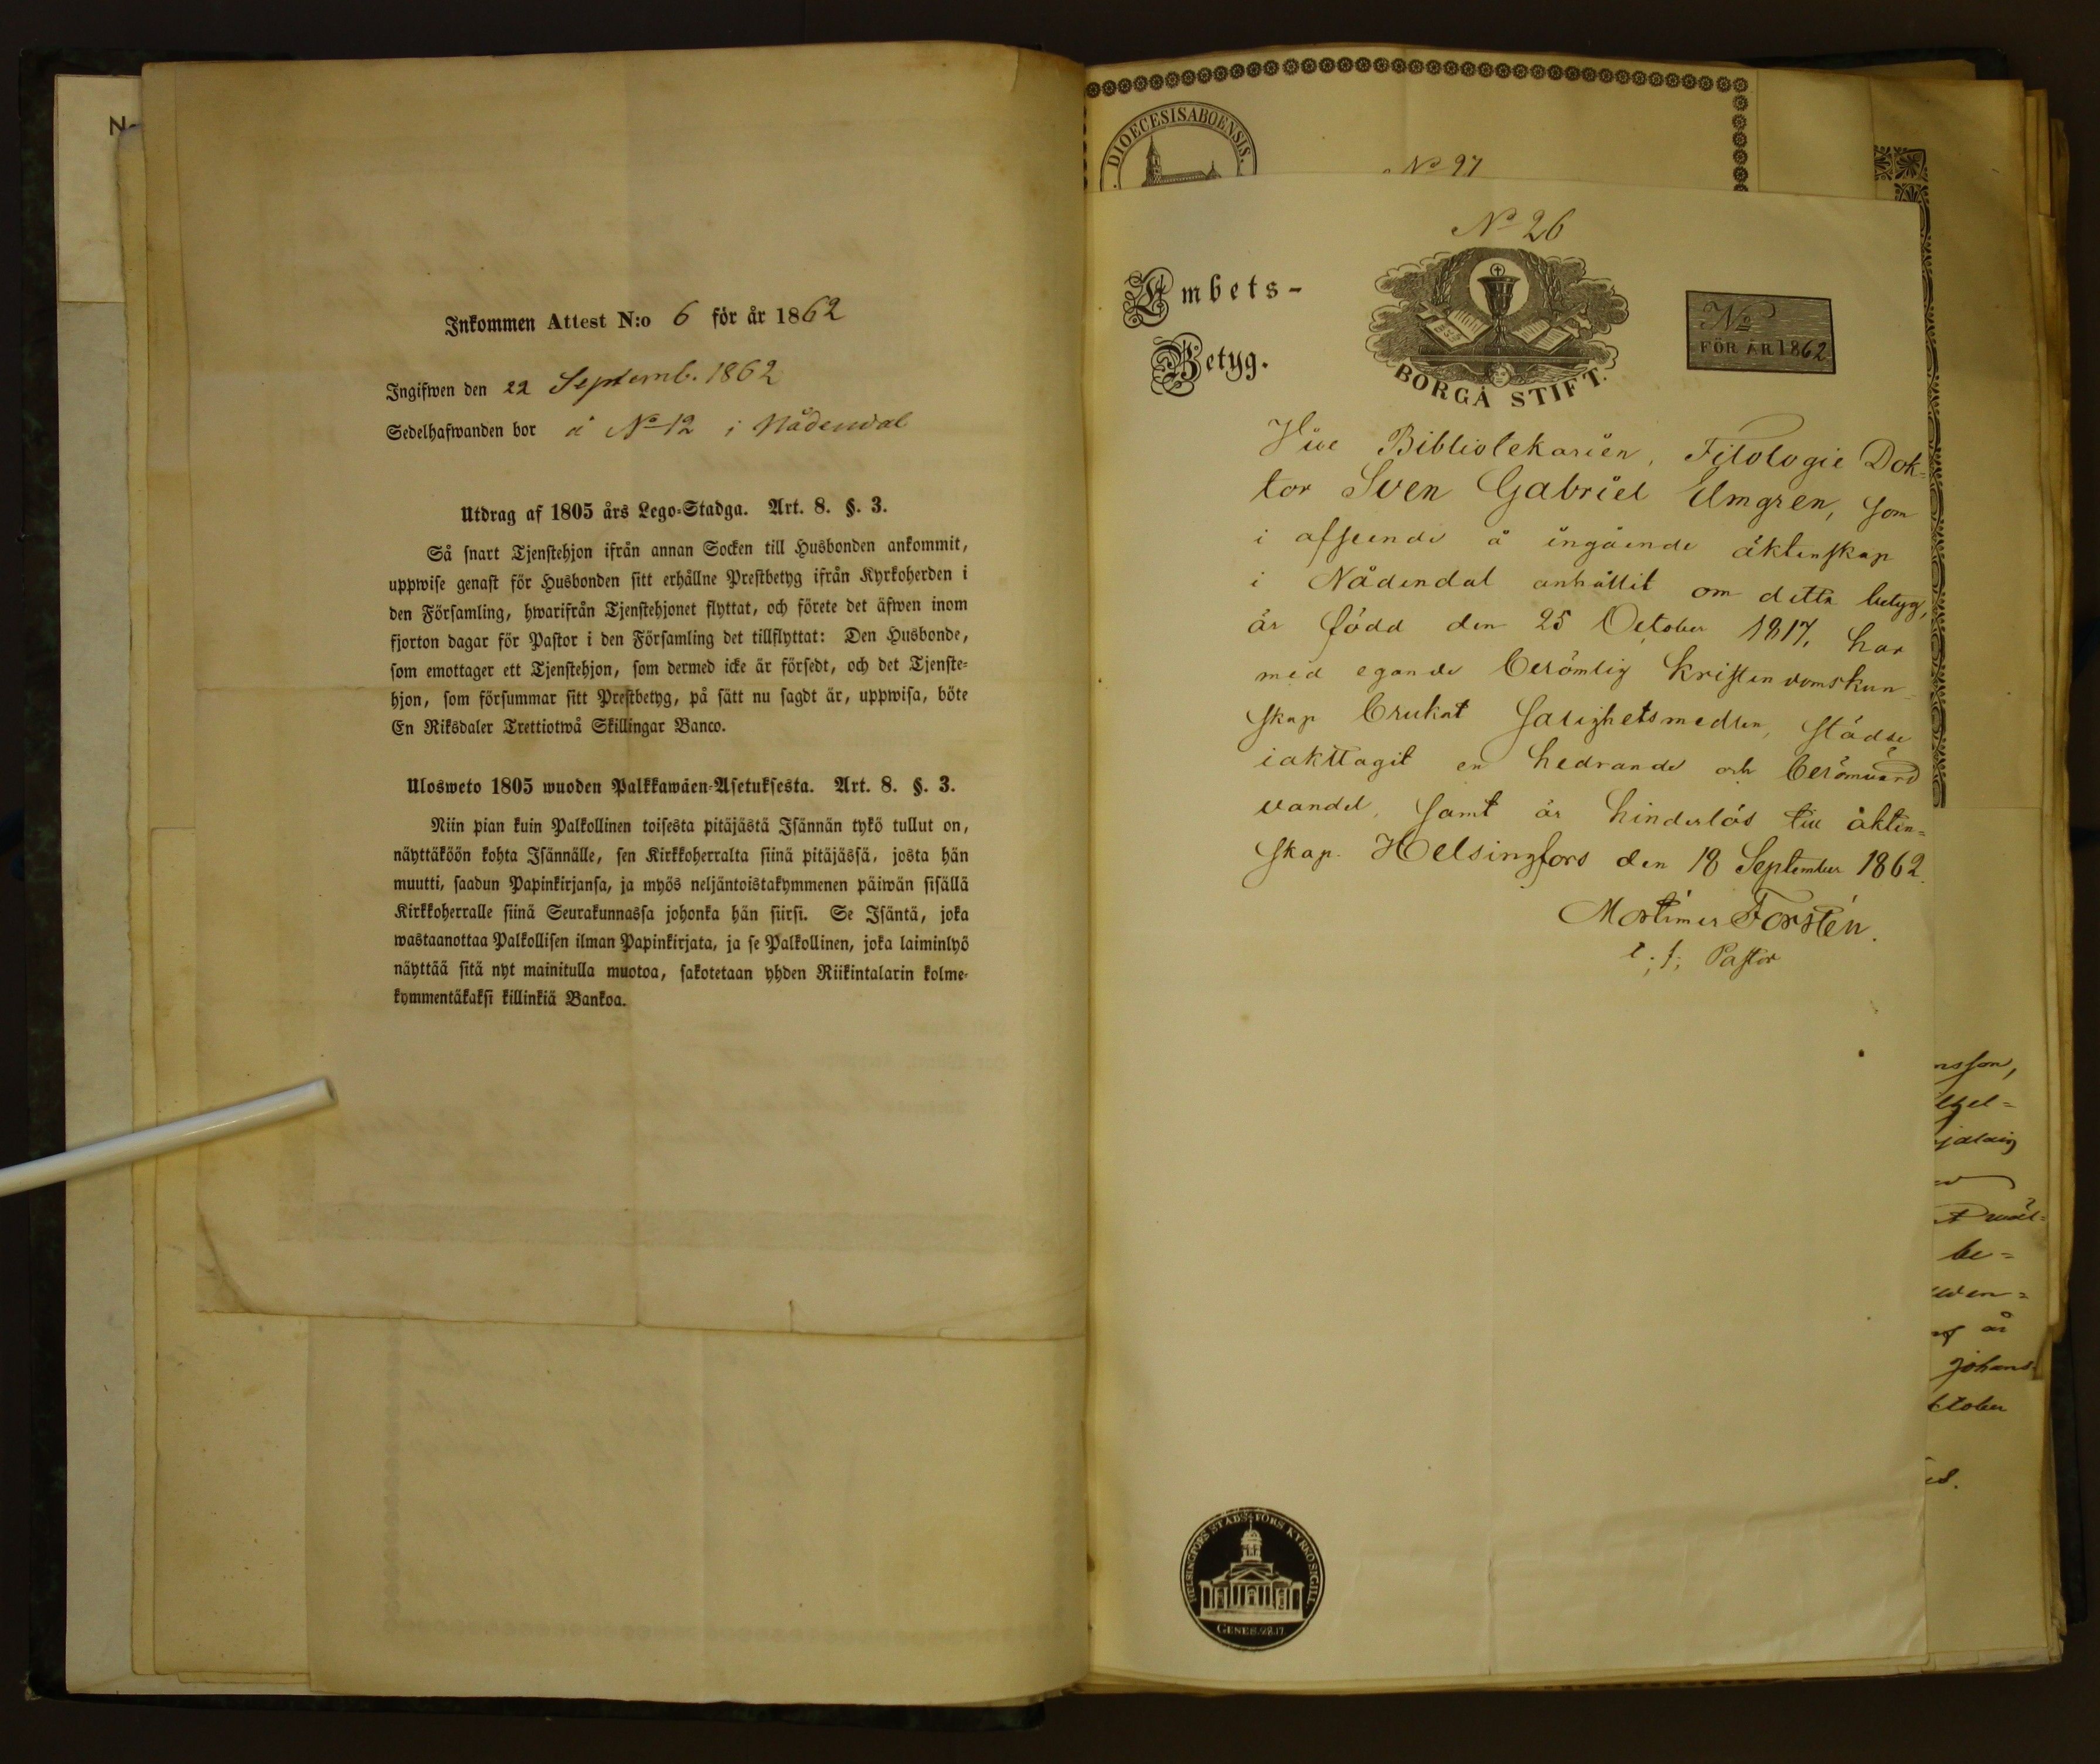 Inkommen Attest N:o 6 för år 1862
Ingifwen den 22 Septemb. 1862
Sedelhafwanden bor å No 12 i Nådendal
Utdrag af 1805 års Lego-Stadga. Art. 8. §. 3.
Så snart Tjenstehjon ifrån annan Socken till Husbonden ankommit,
uppwise genast för Husbonden sitt erhållne Prestbetyg ifrån Kyrkoherden i
den Församling, hwarifrån Tjenstehjonet flyttat, och förete det äfwen inom
fjorton dagar för Pastor i den Församling det tillflyttat: Den Husbonde,
som emottager ett Tjenstehjon, som dermed icke är försedt, och det Tjenste-
hjon, som försummar sitt Prestbetyg, på sätt nu sagdt är, uppwisa, böte
En Riksdaler Trettiotwå Skillingar Banco.
Ulosweto 1805 wuoden Palkkawäen-Asetuksesta. Art. 8. §. 3.
Niin pian kuin Palkollinen toisesta pitäjästä Isännän tykö tullut on,
näyttäköön kohta Isännälle, sen Kirkkoherralta siinä pitäjässä, josta hän
muutti, saadun Papinkirjansa, ja myös neljäntoistakymmenen päiwän sisällä
Kirkkoherralle siinä Seurakunnassa johonka hän siirsi. Se Isäntä, joka
wastaanottaa Palkollisen ilman Papinkirjata, ja se Palkollinen, joka laiminlyö
näyttää sitä nyt mainitulla muotoa, sakotetaan yhden Riikintalarin kolme-
kymmentäkaksi killinkiä Bankoa.
DIOECESIS ABOENSIS.
No 27
No 26
Embets-
Betyg.
BORGÅ STIFT.
No
FÖR ÅR 1862
Vice Bibliotekarien, Filologie Dok-
tor Sven Gabriel Elmgren, som
i afseende å ingående äktenskap
i Nådendal anhållit om detta betyg,
är född den 25 October 1817, har
med egande berömlig kristendomskun-
skap brukat salighetsmedlen, städse
iakttagit en hedrande och berömvärd
vandel, samt är hinderlös till äkten-
skap. Helsingfors den 18 September 1862.
Mortimer Forstén.
t. f. Pastor
HELSINGFORS STADS FÖRS KYRKO SIGILL.
GENES. 28.17
nsson,
be=
år
Johans
ktober